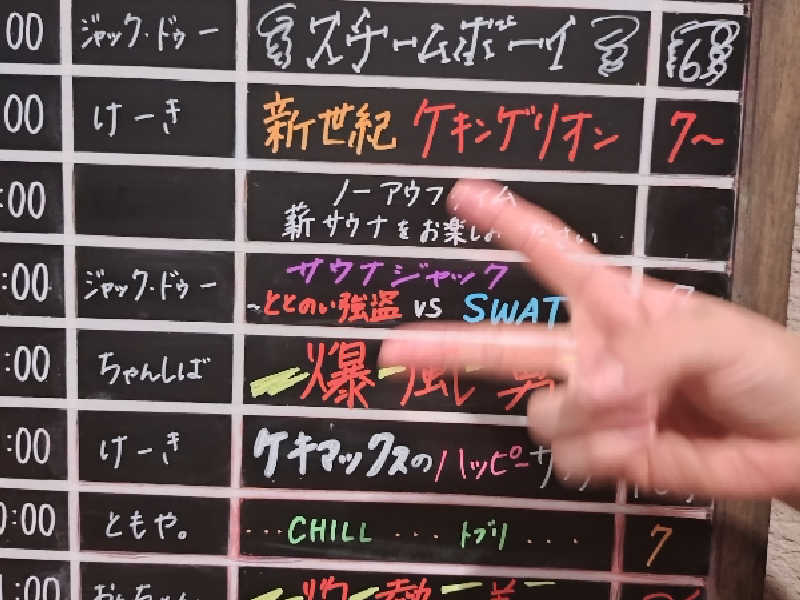 00 ジャック・ドゥー スチームボーイ
00 けーき 新世紀 ケキングリオン 7〜
:00 ノーアウフ イム
薪サウナをお楽し さい
:00 ジャック・ドゥー サウナジャック
〜ととのい強盗 vs SWAT
:00 ちゃんしば 爆風
:00 けーき ケキマックスのハッピーサ
0:00 ともや。 ...CHILL ... トブリ ... 7
:00